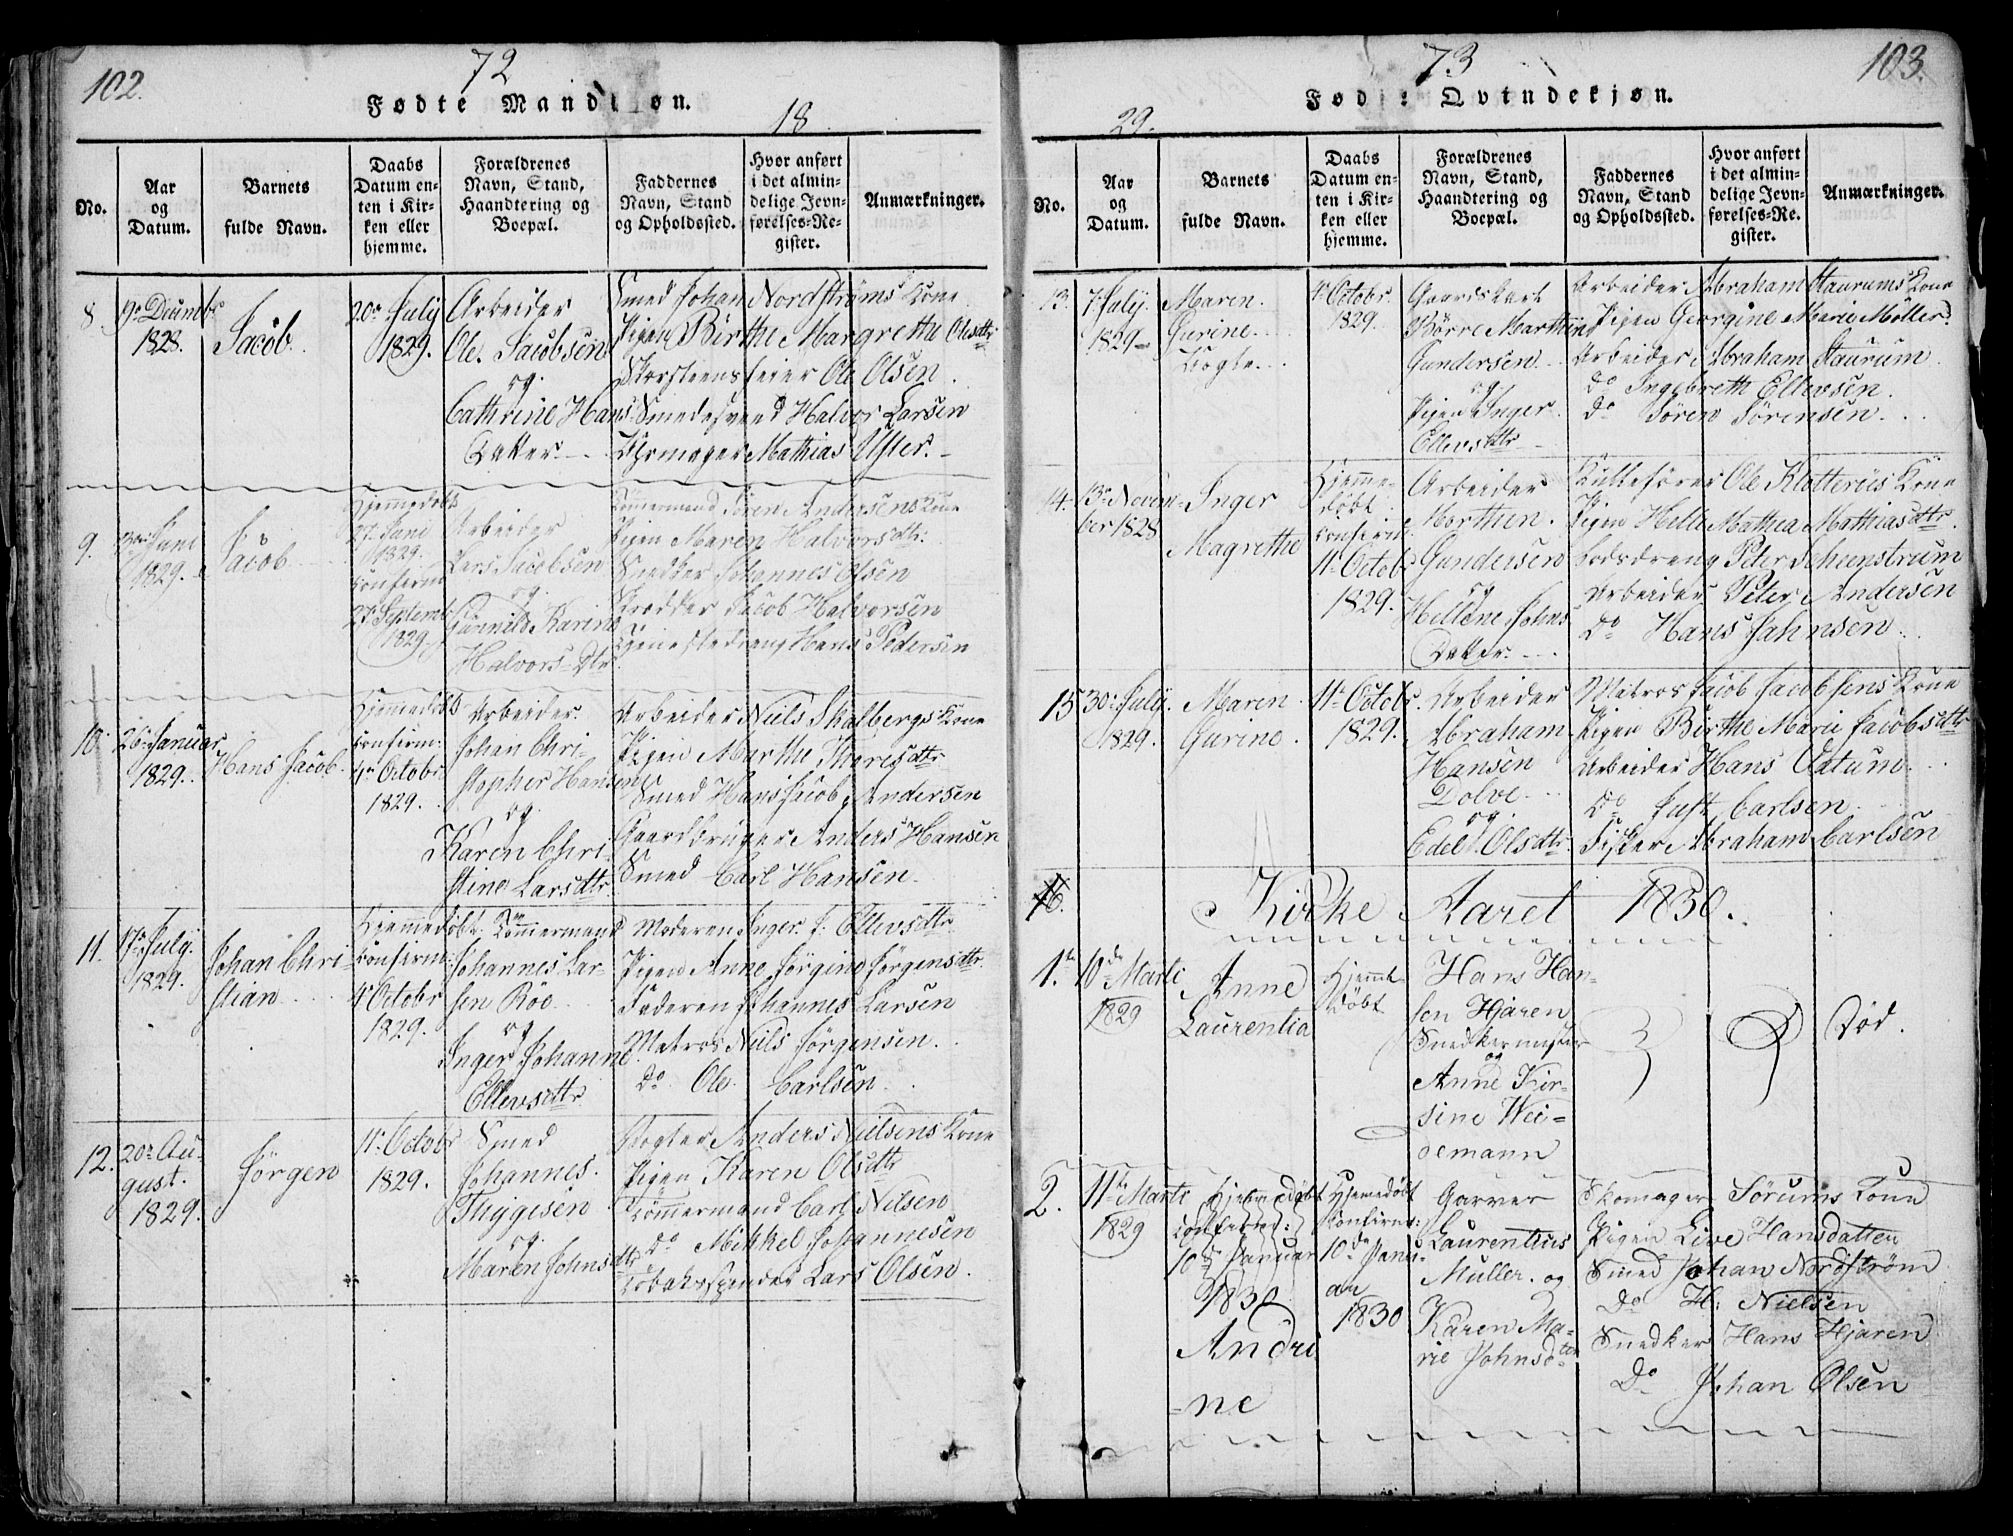 102.
72
Fødte Mandkjøn.
18
No.
Aar
og
Datum.
Barnets
fulde Navn.
Daabs
Datum en-
ten i Kir-
ken eller
hjemme.
Forældrenes
Navn, Stand,
Haandtering og
Boepæl.
Faddernes
Navn, Stand
og Opholdssted.
Hvor anført
i det almin-
delige Jevn-
førelses-Re-
gister.
Anmærkninger.
8
19de Decembr
1828.
Jacob.
20de July
1829.
Arbeider
Ole Jacobsen
og
Cathrine Hans
Datter.
Smed Johan Nordstrøms Kone
Pigen Birthe Margrethe Olsdtr
Skorsteensfeier Ole Olsen.
Smedesvend Halvor Larsen
Uhrmager Mathias
9.
Juni
1829.
Jacob
Hjemedøbt
27 Juni
1829.
Confirm
27 Septemb
1829.
Arbeider
Lars Jacobsen
og
Gunnild Karine
Halvors-Dtr.
Tømmermand Søren Andersens Kone
Pigen Maren Halvorsdtr:
Snedker Johannes Olsen
Skrædder Jacob Halvorsen
Tjenestedreng Hans Pedersen
10.
26. Januar
1829.
Hans Jacob.
Hjemedøbt
Confirm:
4de Octobr
1829.
Arbeider.
Johan Chri-
stopher Hansen
og
Karen Chri-
stine Larsdtr
Arbeider Niels Skalbergs Kone
Pigen Marthe Tharesdtr
Smed Hans Jacob Andersen
Gaardbruger Anders Hansen
Smed Carl Hansen.
11.
17de July.
1829.
Johan Chri-
stian
Hjemedøbt.
Confirm:
4. Octobr
1829.
Tømmermand
Johannes Lar-
sen Röe
og
Inger Johanne
Ellevsdtr
Moderen Inger J. Ellevsdtr
Pigen Anne Jørgine Jørgensdtr.
Faderen Johannes Larsen
Matros Niels Jørgensen.
Do Ole Carlsen.
12.
20de Au-
gust.
1829.
Jørgen
11. Octobr
1829.
Smed
Johannes
Thygesen
og
Maren Johnsdtr
Anders Nielsens Kone
Pigen Karen Olsdtr
Tømmermand Carl Nilsen
Do Mikkel Johannesen
Tobaksspinder Lars Olsen.
103.
73
Fødte Qvindekjøn.
29.
No.
Aar
og
Datum.
Barnets
fulde Navn.
Daabs
Datum en-
ten i Kir-
ken eller
hjemme.
Forældrenes
Navn, Stand,
Haandtering og
Boepæl.
Faddernes
Navn, Stand
og Opholdssted.
Hvor anført
i det almin-
delige Jevn-
førelses-Re-
gister.
Anmærkninger.
13.
7. July.
1829
Maren
Gurine
4. Octobr.
1829.
Gaardskarl
Børre Marthin
Gundersen
og
Pigen Inger
Ellevsdtr
Arbeider Abraham Staurums Kone
Pigen Georgine Marie Møller.
Arbeider Abraham Staurum
Do Ingebreth Ellevsen.
Do Søren Sørensen.
14.
13. Novem-
ber 1828
Inger
Magrethe
Hjemme-
døbt
Confirm
11. Octobr
1829.
Arbeider
Morthen
Gundersen
og
Hellene Johns
Datter.
Ole Klotteröes Kone
Pigen Helle Mathea Mathiasdtr.
Lodsdreng Peter Scheenstrum
Arbeider Peter Andersen
Do Hans Jahnsen.
15
30. July.
1829.
Maren
Gurine.
11. Octobr.
1829.
Arbeider
Abraham
Hansen
Dolve
og
Edel Olsdtr.
Matros Jacob Jacobsens Kone
Pigen Birthe Marie Jacobsdtr
Arbeider Hans
Do Just Carlsen
Fisker Abraham Carlsen
16.
Kirke Aaret 1830.
1.
10de Marti
1829
Anne
Laurentia
Hjemme
døbt
Hans Han-
sen Hjaren
Snedkermester
og
Anne Kir-
sine Wei-
demann
Død.
2.
11te Marti
1829
Hjemedøbt
Confirm:
10de Januar
1830
Andri
-ne
Hjemedøbt
Confirm:
10de Janu-
ar
1830
Garver
Laurentius
Müller. og
Karen Ma-
rie Johnsdtr
Skomager Sørums Kone
Pigen Live Hansdatter
Smed Johan Nordstrøm
Do H: Nielsen
Snedker Hans Hjaren
Do Johan Olsen